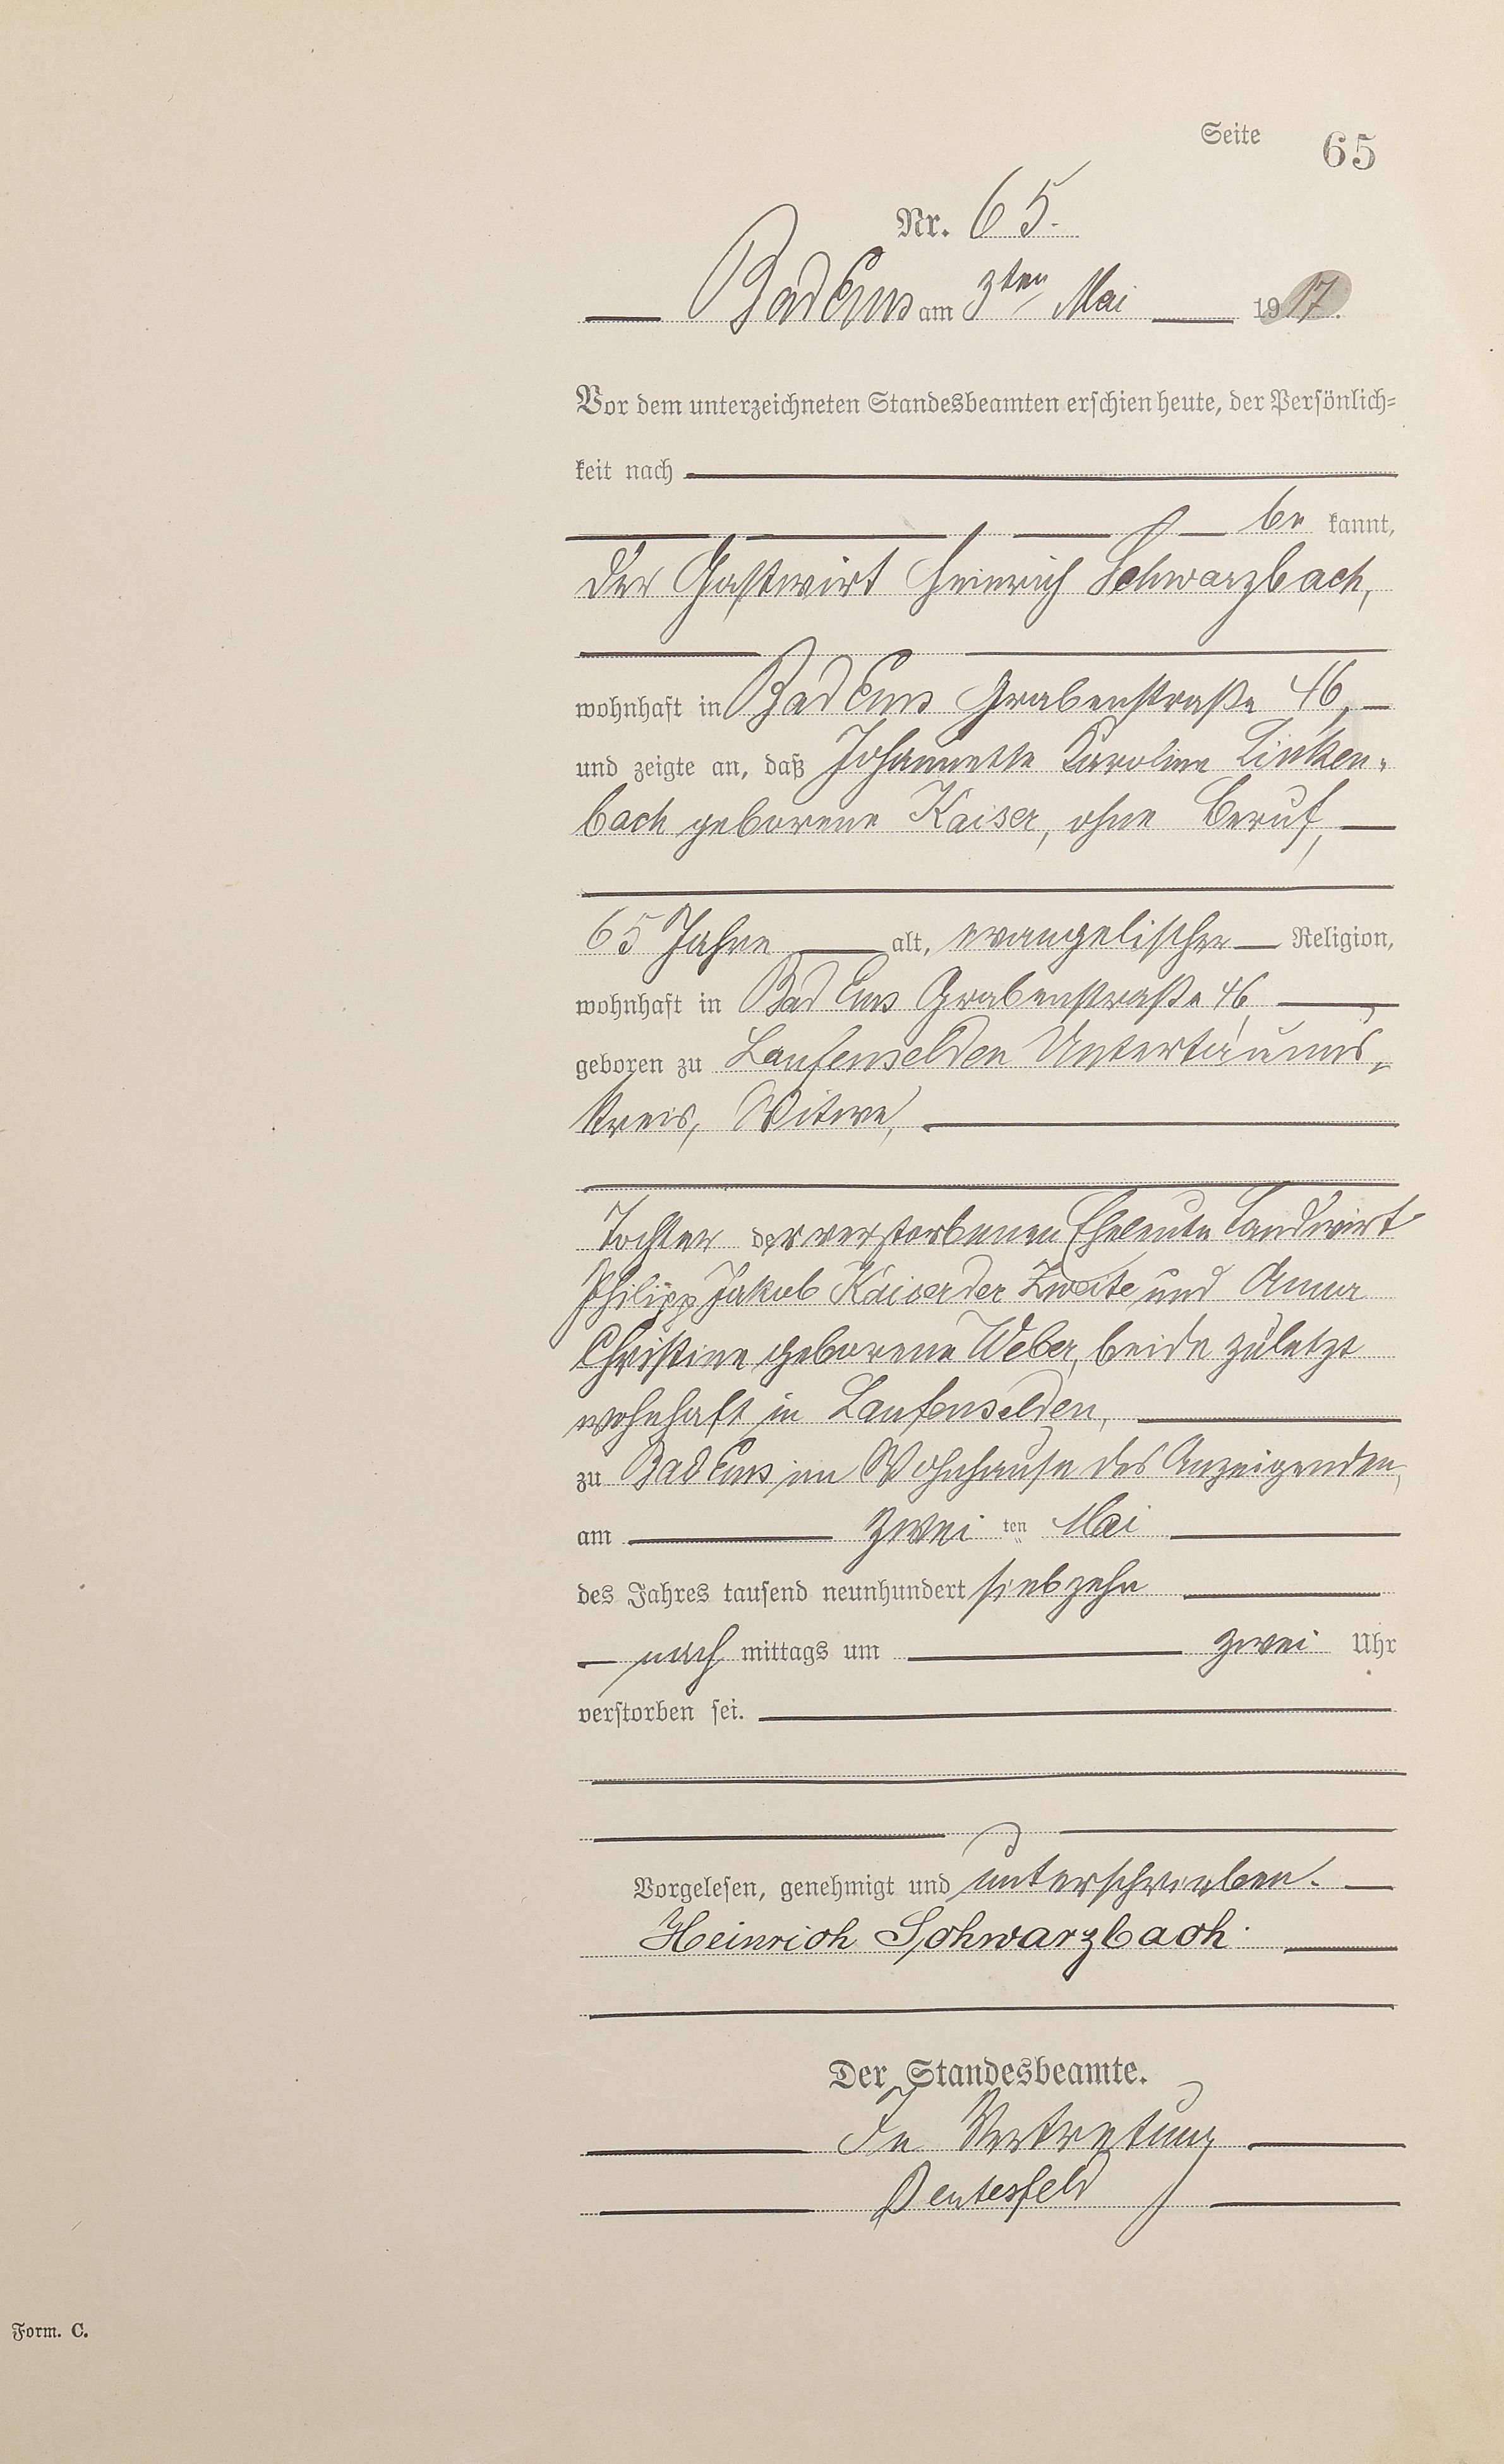 Seite 65
Nr. 65.
Bad Ems am 3ten Mai 1917.
Vor dem unterzeichneten Standesbeamten erschien heute, der Persönlich-
keit nach
be kannt,
der Gastwirt Heinrich Schwarzbach,
wohnhaft in Bad Ems Grabenstraße 46,
und zeigte an, daß Johannette Karoline Linken-
bach geborene Kaiser, ohne Beruf,
65 Jahre alt, evangelischer Religion,
wohnhaft in Bad Ems Grabenstraße 46,
geboren zu Laufenselden Untertaunus-
kreis, Witwe,
Tochter der verstorbenen Eheleute Landwirt
Philipp Jakob Kaiser der Zweite und Anna
Christine geborene Weber, beide zuletzt
wohnhaft in Laufenselden,
zu Bad Ems im Wohnhause des Anzeigenden,
am zwei ten Mai
des Jahres tausend neunhundert siebzehn
nach mittags um zwei Uhr
verstorben sei.
Vorgelesen, genehmigt und unterschrieben.
Heinrich Schwarzbach.
Der Standesbeamte.
In Vertretung
Form. C.